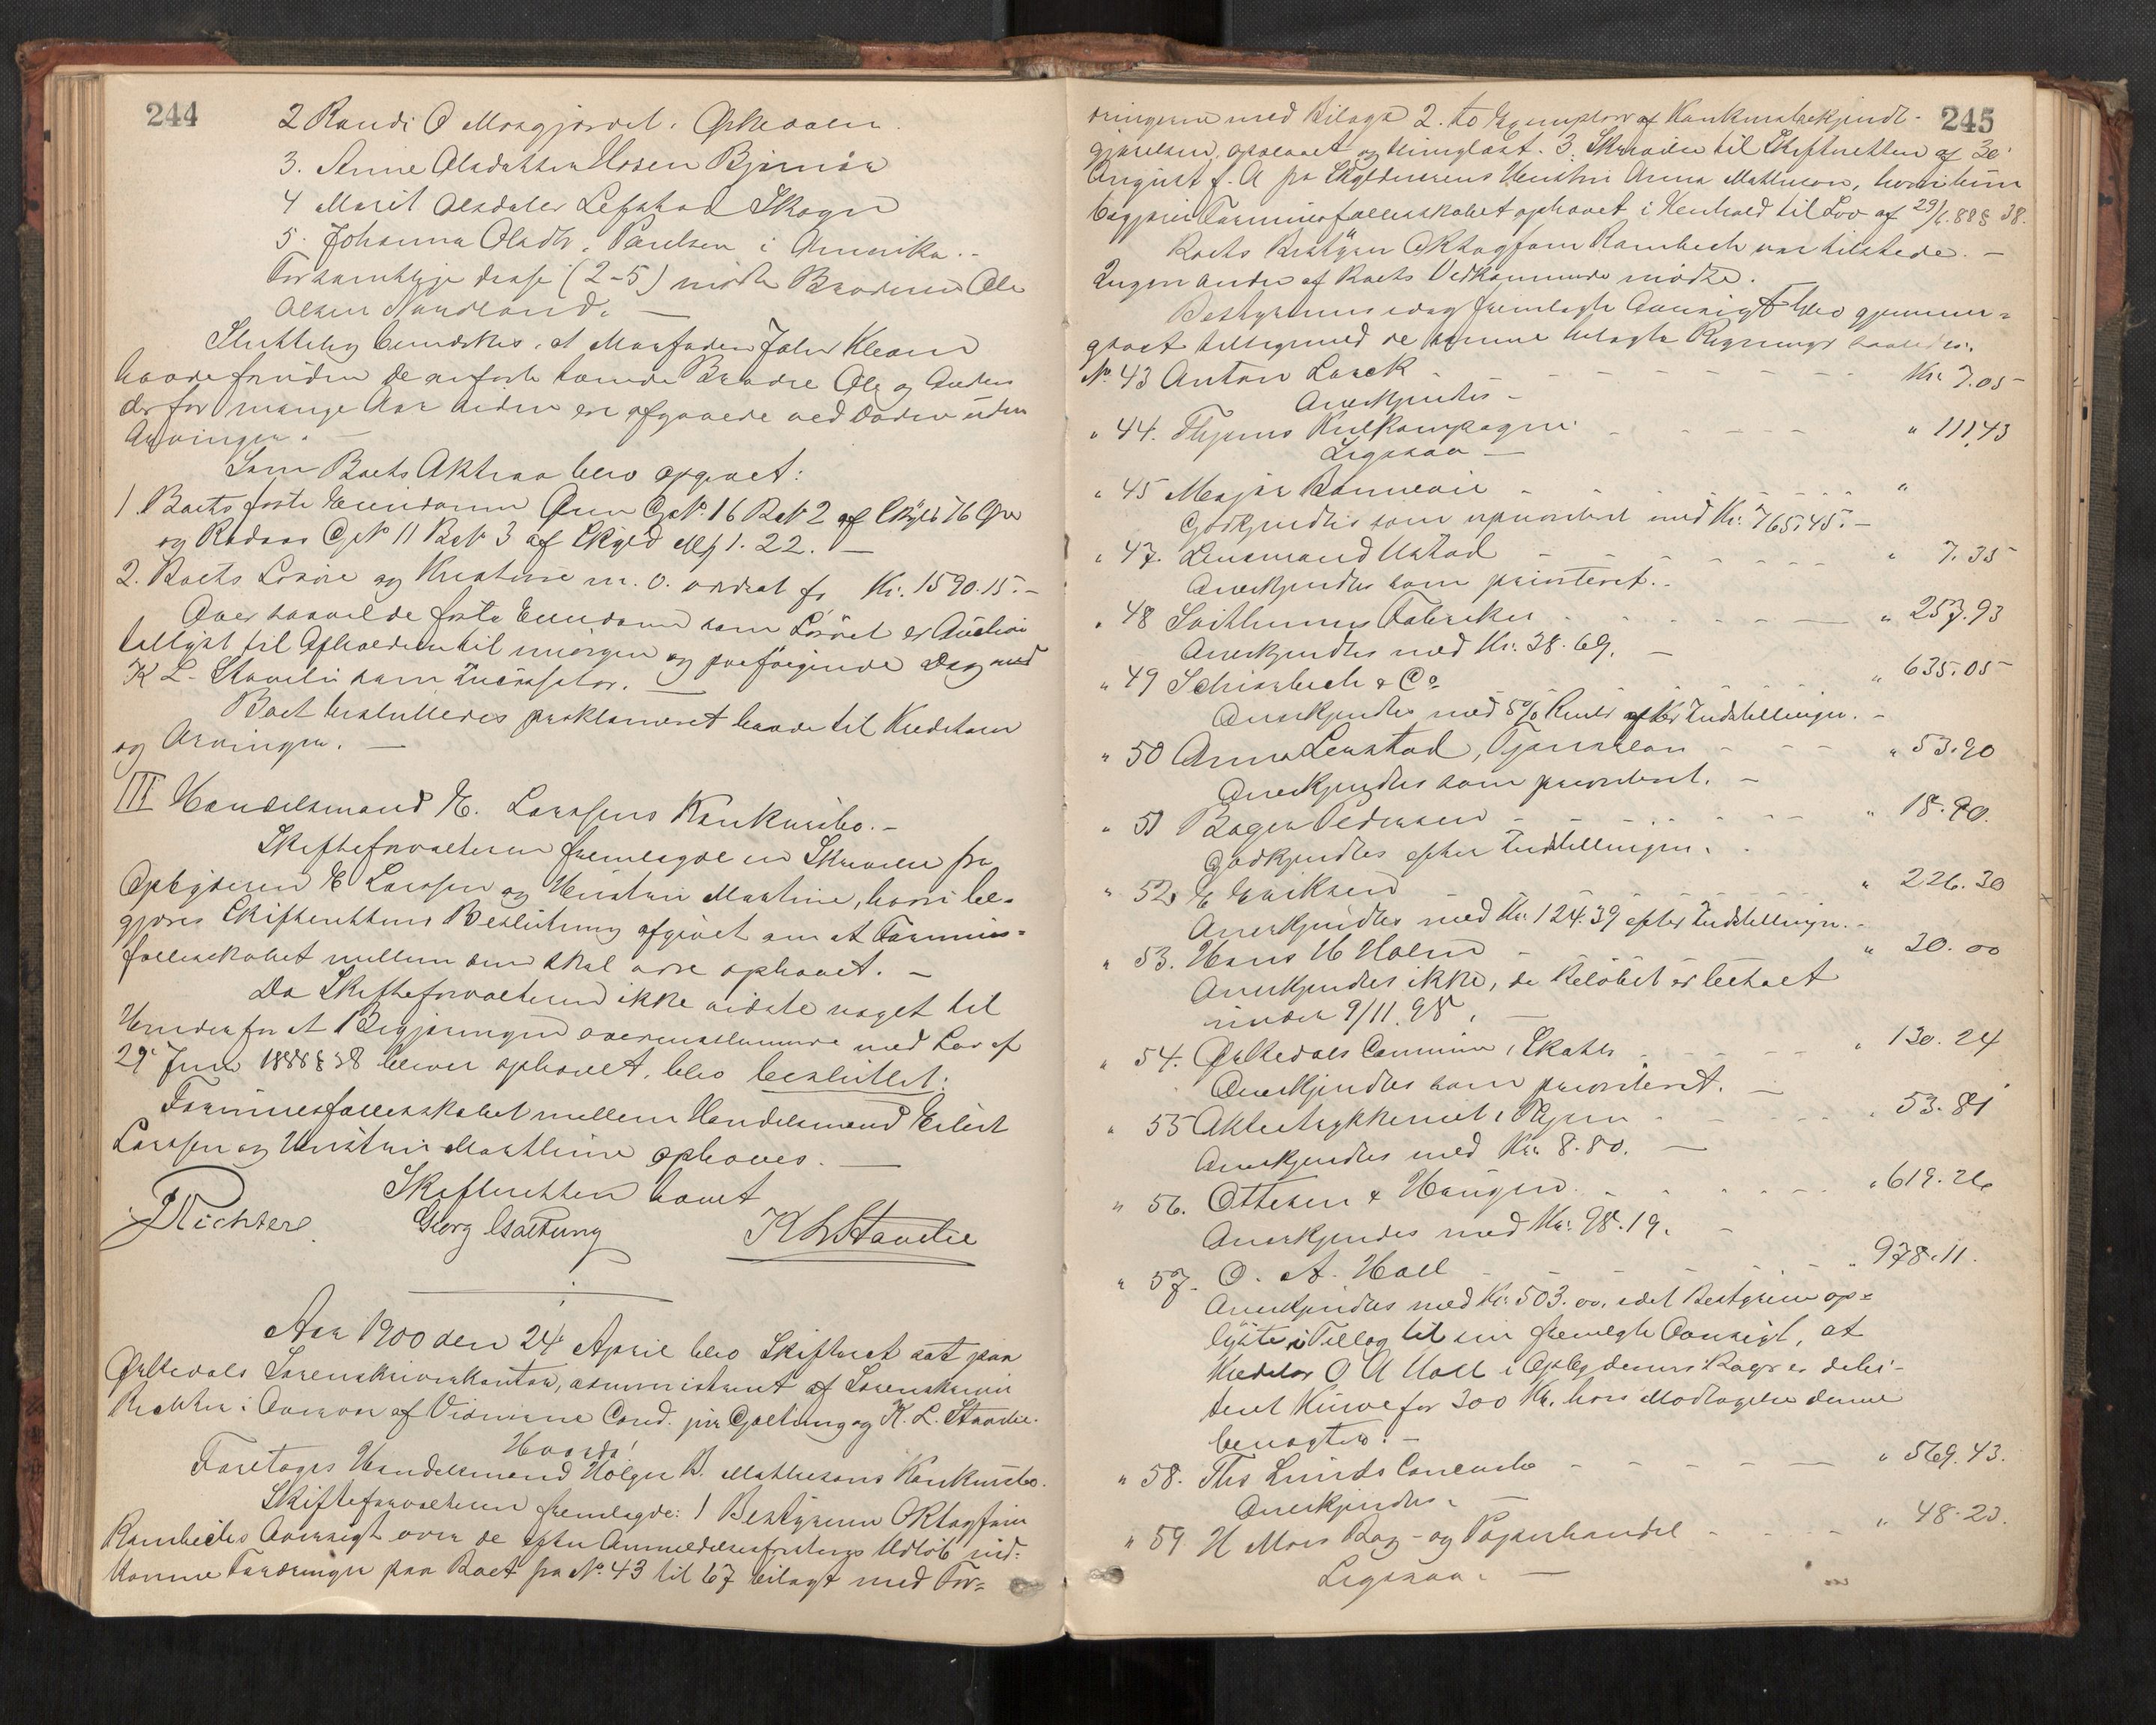 244
2 Randi O Moagjærdet. Ørkedalen.
3. Anne Olsdatter Hosen Bjørnør
4 Marit Olsdatter Skogn
5. Johanna Olsdtr. Paulsen i Amerika.-
For samtlige disse (2-5) mødte Broderen Ole
Olsen
Slutteligen bemærkes, at Morfaderen John Kleven
havde foruden de anførte tvende Brødre Ole og Anders
der for mange Aar siden ere afgaaede ved Døden uden
Arvinger. —
Som Boets Aktiva blev opgivet:
1 Boets faste Eiendomme Øien GNo. 16 BNo 2 af Skyld 76 Øre
og GNo 11 BNo 3 af Skyld Mk 1. 22. —
2. Boets Løsøre og Kreaturer m. v. vurdert for Kr. 1590.15.-
Over saavel de faste Eiendomme som Løsøret er Auction
tillyst til Afholdelse til imorgen og paafølgende Dag med
K L. Stavelie som Inkassator. —
Boet besluttedes proklameret baade til Kreditorer
og Arvinger. —
III Handelsmand E. Larssens Konkursbo.-
Skifteforvalteren fremlagde en Skrivelse fra
Opbyderen E Larssen og Hustru Martine, hvori be-
gjæres Skifterettens Beslutning afgivet om at Formues-
fællesskabet mellem dem skal være ophævet. —
Da Skifteforvalteren ikke vidste noget til
Hinder for at Begjæringen overensstemmende med Lov af
29' Juni 1888 § 38 bliver ophævet, blev besluttet:
Formuesfællesskabet mellem Handelsmand Eilert
Larssen og Hustru Marthine ophæves. —
Skifteretten hævet
Richter. Georg Gæltung K L Stavelie
Aar 1900 den 24 April blev Skifteret sat paa
Ørkedals Sorenskriverkontor, administreret af Sorenskriver
Richter i Overvær af Vidnerne Cand. jur Gjeltung og K. L. Stavelie.
Hvorda!
Foretoges Handelsmand Holger B. Mathesons Konkursbo.
Skifteforvalteren fremlagde: 1 Bestyreren ORsagfører
Rambechs Oversigt over de efter Anmeldelsesfristens Udløb ind-
komne Fordringer paa Boet fra No 43 til 67 bilagt med For-
245
dringerne med Bilage 2. to Exemplarer af Konkursbekjendt-
gjørelsen, opslaaet og thinglæst. 3. Skrivelse til Skifteretten af 30'
August f. A fra Skyldnerens Hustru Anna Mathesen, hvori hun
begjærer Formuesfællesskabet ophævet i Henhold til Lov af 29/6.88 § 38.
Boets Bestyrer ORsagfører Rambech var tilstede. —
Ingen anden af Boets Vedkommende mødte.
Bestyrerens idag fremlagte Oversigt blev gjennem-
gaaet tilligemed de samme bilagte Regninger saaledes:
No 43 Anton Larck - Kr 7.05
Anerkjendtes -
" 44. Thjems Kulkompagni " 111,43
Ligesaa —
" 45 Major Bonnevie - "
Godkjendtes som uprioriteret med Kr. 765.45.—
" 47. Lensmand Ustad " 7.35
Anerkjendtes som prioriteret.-
" 48 Svithuns Fabriker " 257.93
Anerkjendtes med Kr. 38.69. —
" 49 Schirsbech & Co. " 635.05
Anerkjendtes med 5% Renter efter Indstillingen. -
" 50 Anna Lenstad, Tjenerløn " 53.90
Anerkjendtes som prioriteret. -
" 51 Bager Pedersen " 18.90.
Godkjendtes efter Indstillingen.
" 52. E Eriksen " 226.30
Anerkjendtes med Kr. 124.39 efter Indstillingen. -
" 53. Hans H Holm " 20.00
Anerkjendtes ikke, da Beløbet er betalt
under 9/11.98. —
" 54. Ørkedals Commune, Skatter " 130.24
Anerkjendtes som prioriteret. —
" 55 Aktietrykkeriet i Thjem " 53.81
Anerkjendtes med Kr. 8.80. —
" 56. Ottesen & Haugen. " 619.26
Anerkjendes med Kr. 98.19. -
" 57. O. A. Hall " 978.11.
Anerkjendtes med Kr. 503.00, idet Bestyreren op-
lyste i Tillæg til sin fremlagte Oversigt, at
Kreditor O A Hall i Opbyderens Bøger er debi-
teret Kurve for 300 Kr. hvis Modtagelse denne
benægter. —
" 58. Ths Lunds Concurbo " 569.43.
Anerkjendtes. —
" 59 H Moes Bog- og Papirhandel " 48.23.
Ligesaa. —